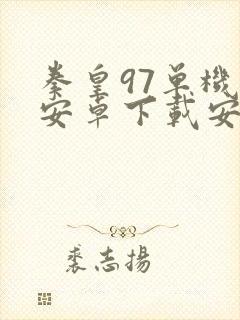 秦皇97单機
安卓下載安
裘志揚